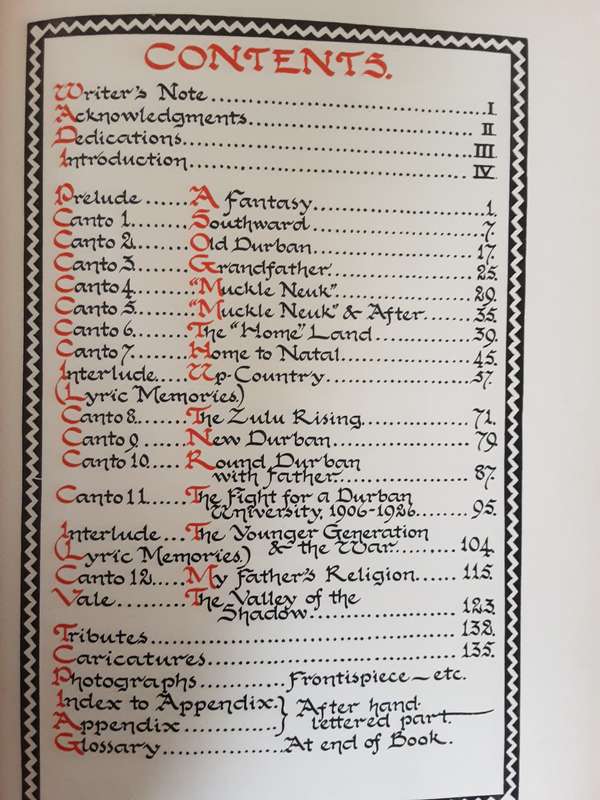 CONTENTS.
Writer's Note.....................................I
Acknowledgments..............................II
Dedications.......................................III
Introduction.......................................IV
Prelude......A Fantasy........................1.
Canto 1........Southward.......................7.
Canto 2........Old Durban.....................17.
Canto 3........Grandfather....................25.
Canto 4........"Muckle Neuk"..................29.
Canto 5........"Muckle Neuk" & After.......35.
Canto 6........The "Home" Land.............39.
Canto 7........Home to Natal..................45.
Interlude.....Up-Country.....................57.
(Lyric Memories.)
Canto 8........The Zulu Rising...............71.
Canto 9........New Durban....................79.
Canto 10.....Round Durban
with Father.....................87.
Canto 11......The Fight for a Durban
University, 1906-1926........95.
Interlude...The Younger Generation
(Lyric Memories.) & the War..........104.
Canto 12.....My Father's Religion......115.
Vale..........The Valley of the
Shadow.....................123.
Tributes..........................................132.
Caricatures.....................................135.
Photographs............Frontispiece — etc.
Index to Appendix.} After hand-
Appendix..............} lettered part.
Glossary................At end of Book.